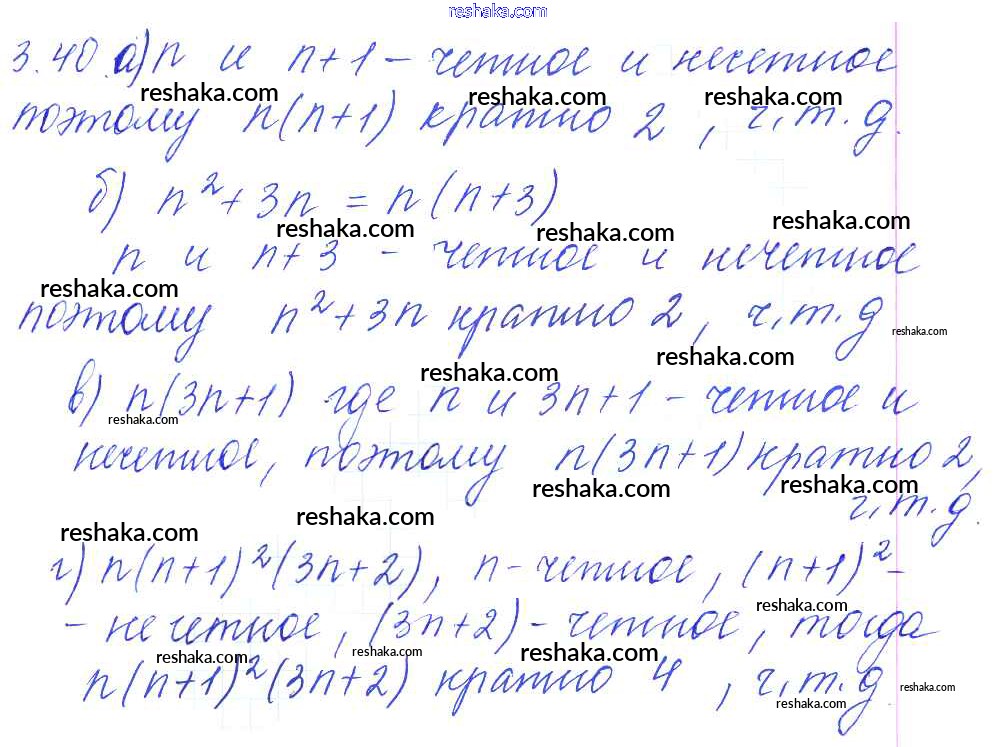 reshaka.com
3.40 а) n и n+1 – четное и нечетное
reshaka.com reshaka.com reshaka.com
поэтому n(n+1) кратно 2, ч.т.д.
б) n²+3n = n(n+3)
reshaka.com reshaka.com reshaka.com
n и n+3 – четное и нечетное
reshaka.com
поэтому n²+3n кратно 2, ч.т.д
reshaka.com
reshaka.com reshaka.com
в) n(3n+1) где n и 3n+1 – четное и
reshaka.com
нечетное, поэтому n(3n+1) кратно 2,
reshaka.com reshaka.com
ч.т.д.
reshaka.com reshaka.com
г) n(n+1)²(3n+2), n – четное, (n+1)² –
reshaka.com
– нечетное, (3n+2) – четное, тогда
reshaka.com reshaka.com reshaka.com
n(n+1)²(3n+2) кратно 4, ч.т.д
reshaka.com
reshaka.com